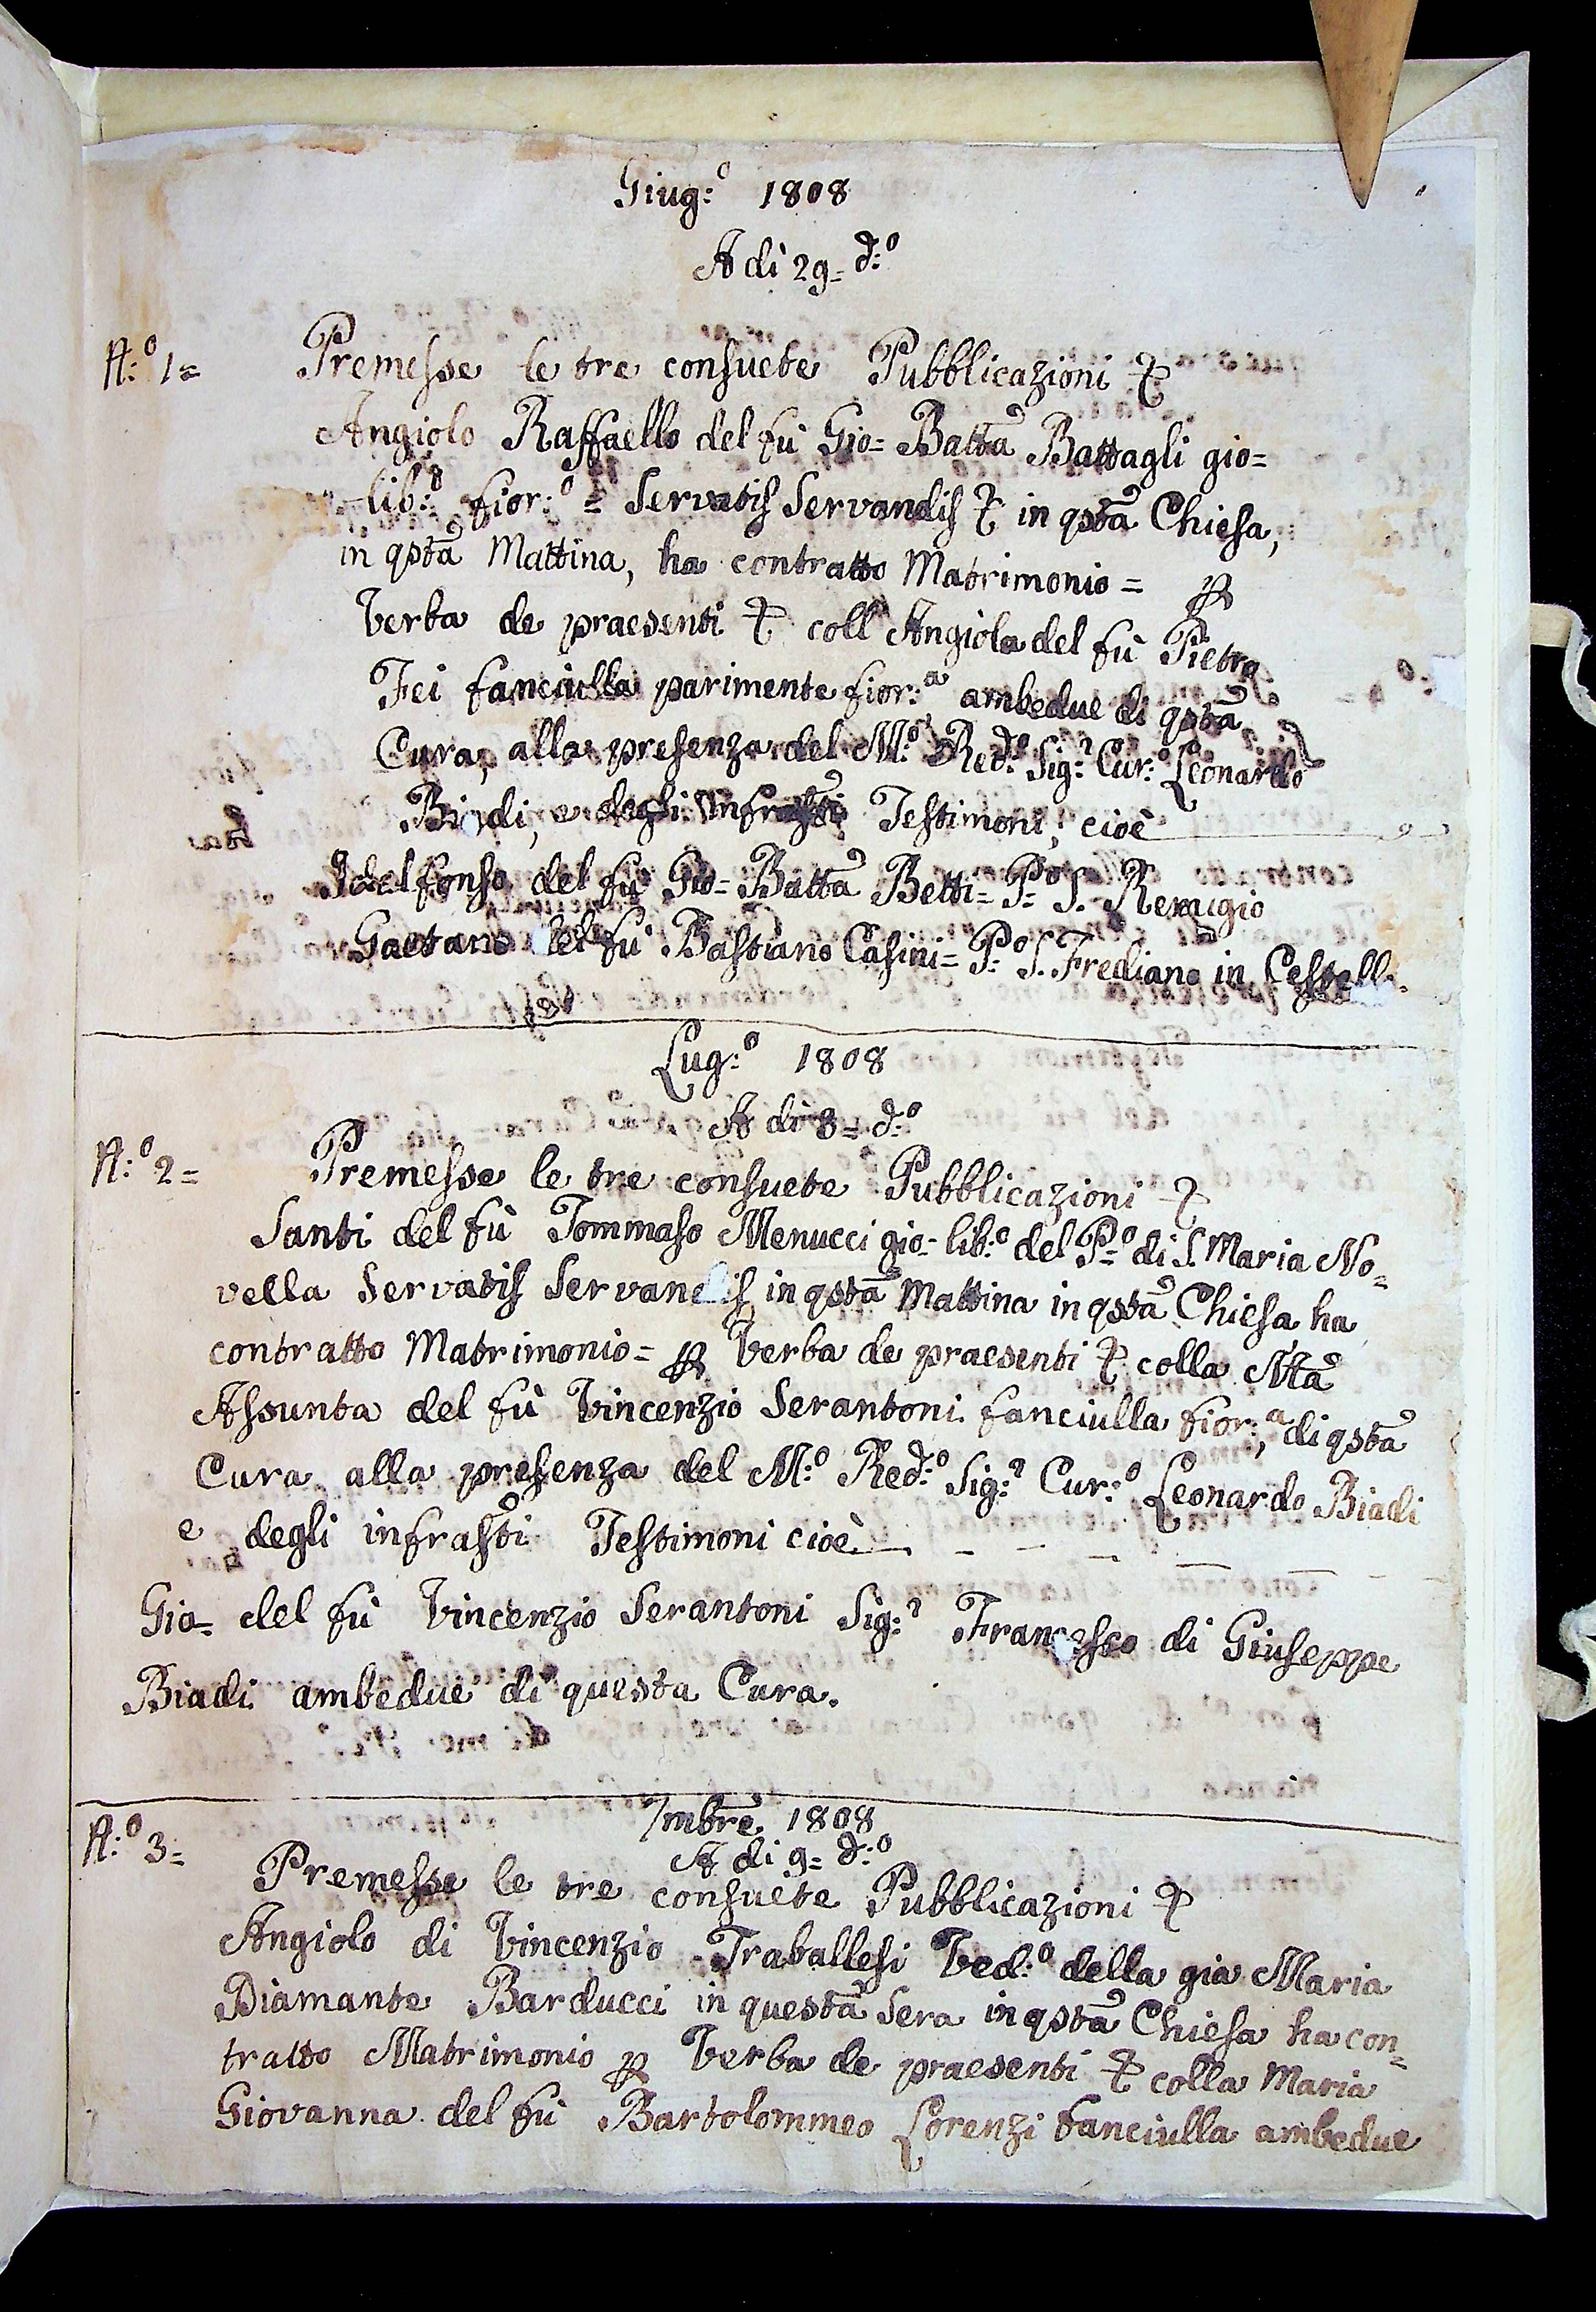 Giug:º 1808
A dì 29= d:º
N:º 1= Premesse le tre consuete Pubblicazioni &
Angiolo Raffaello del fù Gio= Batta Battagli gio=
lib:º fior:º = Servatis Servandis & in qsta Chiesa,
in qsta Mattina, ha contratto Matrimonio = p
Verba de praesenti & coll'Angiola del fù Pietro
Fei fanciulla parimente fior:a ambedue di qsta
Cura, alla presenza del M:º Red:º Sig:r Cur:º Leonardo
Biadi, e degli infrasti Testimoni, cioè
Idelfonso del fù Gio= Batta Betti= P=º S. Remigio
Gaetano del fù Bastiano Casini= P=º S. Frediano in Cestello.
Lug:º 1808
A dì 8= d:º
N:º 2= Premesse le tre consuete Pubblicazioni &
Santi del fù Tommaso Menucci gio= lib:º del P=º di S. Maria No=
vella Servatis Servandis in qsta Mattina in qsta Chiesa ha
contratto Matrimonio= p Verba de praesenti & colla Mta
Assunta del fù Vincenzio Serantoni fanciulla fior:a, di qsta
Cura alla presenza del M:º Red:º Sig:r Cur:º Leonardo Biadi
e degli infrasti Testimoni cioè
Gio= del fù Vincenzio Serantoni Sig:r Francesco di Giuseppe
Biadi ambedue di questa Cura.
7mbre 1808
A di 9= d:º
N:º 3= Premesse le tre consuete Pubblicazioni &
Angiolo di Vincenzio Traballesi Ved:º della gia Maria
Diamante Barducci in questa Sera in qsta Chiesa ha con=
tratto Matrimonio p Verba de praesenti & colla Maria
Giovanna del fù Bartolommeo Lorenzi fanciulla ambedue